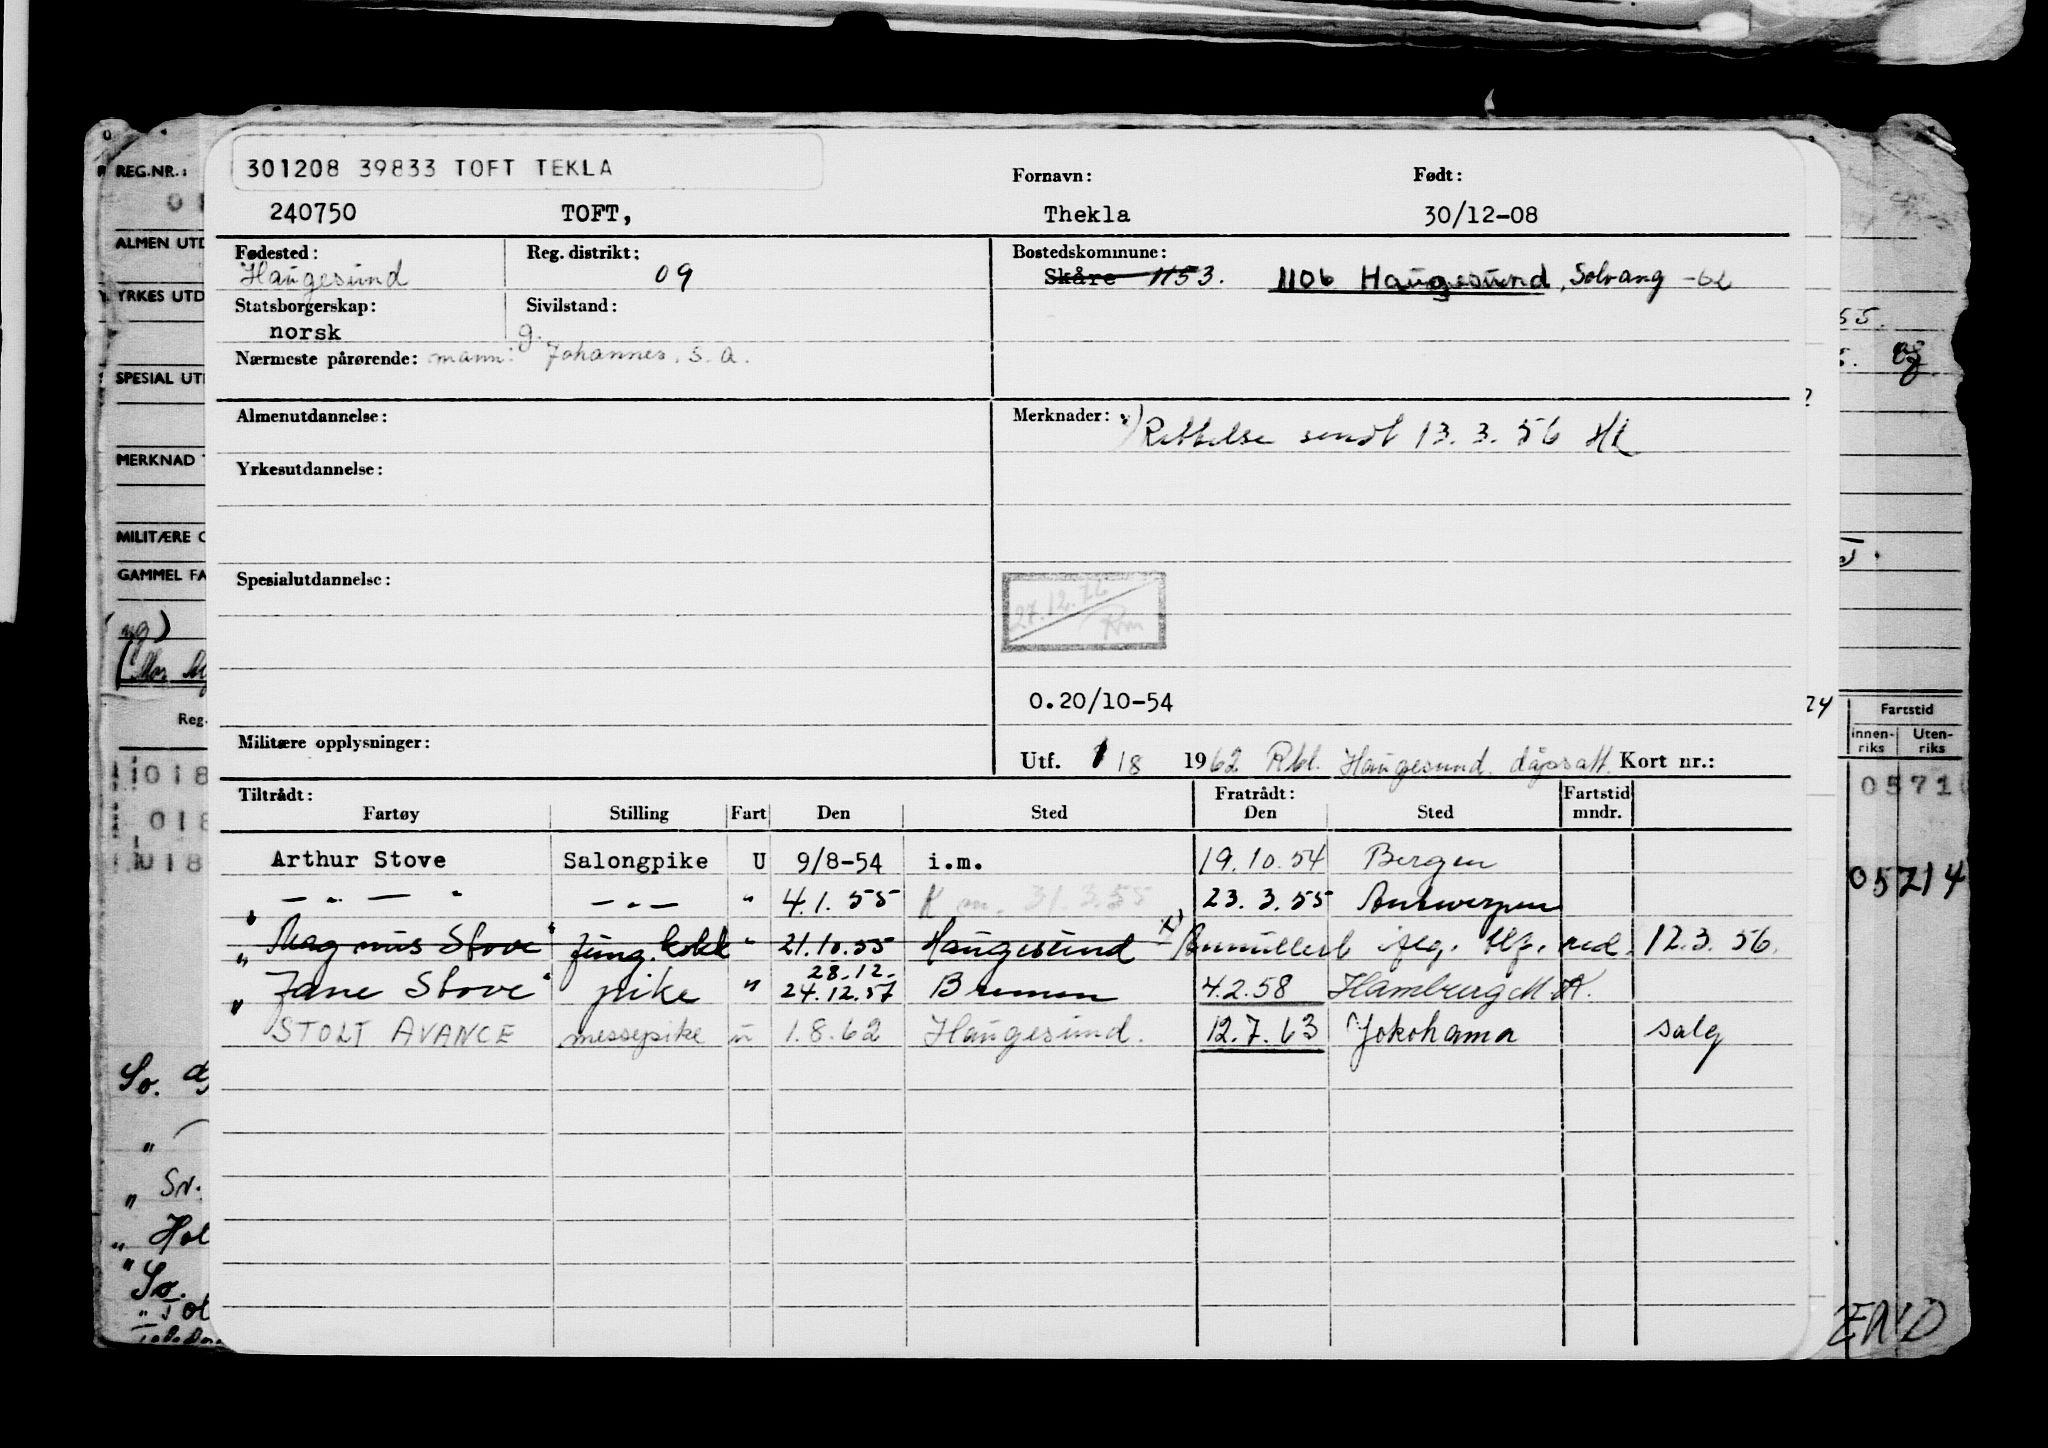 301208 39833 TOFT TEKLA
Fornavn: Født:
240750 TOFT, Thekla 30/12-08
Fødested: Reg. distrikt: Bostedskommune:
Haugesund 09 Skåre 1153. 1106 Haugesund, Solvang -62
Statsborgerskap: Sivilstand:
norsk g.
Nærmeste pårørende: mann: Johannes. s. a.
Almenutdannelse: Merknader: x) Rettelse sendt 13.3.56 HL
Yrkesutdannelse:
Spesialutdannelse:
27.12.76
0.20/10-54
Militære opplysninger:
Utf. 1/8 1962 Rbl. Haugesund. dåpsatt. Kort nr.:
Tiltrådt: Fratrådt: Fartstid
Fartøy Stilling Fart Den Sted Den Sted mndr.
Arthur Stove Salongpike U 9/8-54 i.m. 19.10.54 Bergen
" — " — " — " — " 4.1.55 K m. 31.3.55 23.3.55 Antwerpen
" Magnus Stove" Jung.kokk " 21.10.55 Haugesund x) Annullert iflg. Utf. red. 12.3.56.
28.12.
" Jane Stove" pike " 24.12.57 Bremen 4.2.58 Hamburg M.K.
STOLT AVANCE messepike u 1.8.62 Haugesund. 12.7.63 Yokohama salg
REG.NR.:
ALMEN UTD
YRKES UTD
SPESIAL UT
MERKNAD
MILITÆRE O
GAMMEL FA
Reg.
018
018
018
So.
Sv.
Hol
So.
55.
24
Fartstid
innen-riks Uten-riks
0571
05714